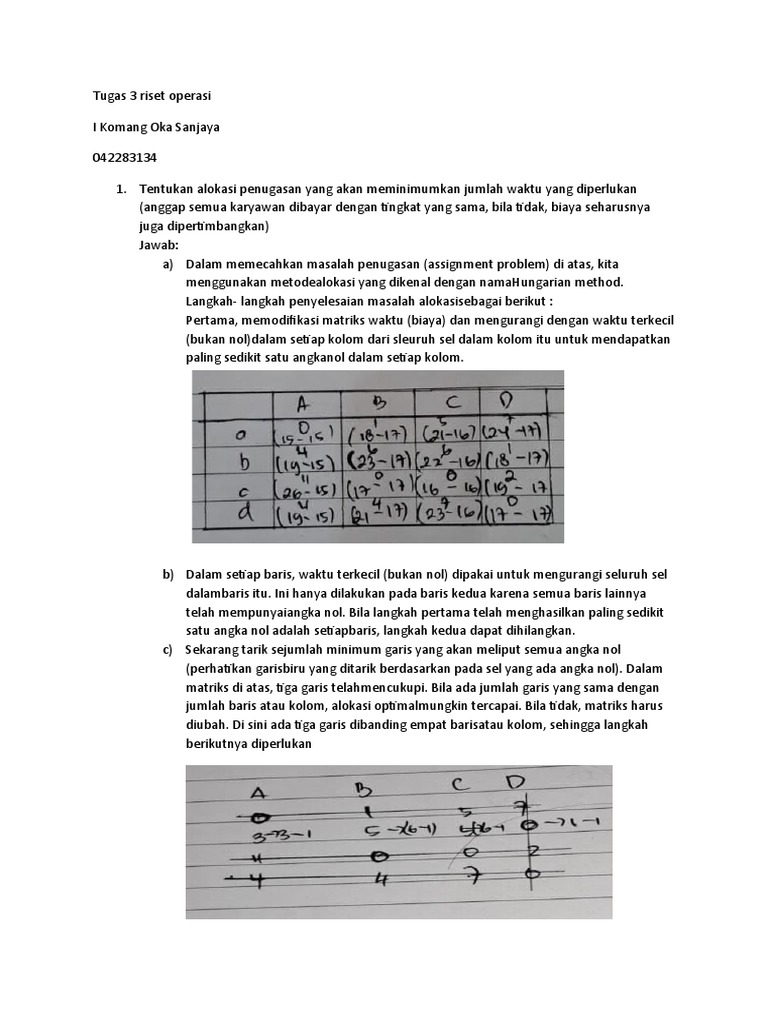 Tugas 3 riset operasi
I Komang Oka Sanjaya
042283134
1. Tentukan alokasi penugasan yang akan meminimumkan jumlah waktu yang diperlukan
(anggap semua karyawan dibayar dengan tingkat yang sama, bila tidak, biaya seharusnya
juga dipertimbangkan)
Jawab:
a) Dalam memecahkan masalah penugasan (assignment problem) di atas, kita
menggunakan metodealokasi yang dikenal dengan namaHungarian method.
Langkah- langkah penyelesaian masalah alokasisebagai berikut :
Pertama, memodifikasi matriks waktu (biaya) dan mengurangi dengan waktu terkecil
(bukan nol)dalam setiap kolom dari sleuruh sel dalam kolom itu untuk mendapatkan
paling sedikit satu angkanol dalam setiap kolom.
A B C D
0 1 5 7
a (15-15) (18-17) (21-16) (24-17)
4 6 6 1
b (19-15) (23-17) (22-16) (18-17)
11 0 0 2
c (26-15) (17-17) (16-16) (19-17
4 4 7 0
d (19-15) (21-17) (23-16) (17-17)
b) Dalam setiap baris, waktu terkecil (bukan nol) dipakai untuk mengurangi seluruh sel
dalambaris itu. Ini hanya dilakukan pada baris kedua karena semua baris lainnya
telah mempunyaiangka nol. Bila langkah pertama telah menghasilkan paling sedikit
satu angka nol adalah setiapbaris, langkah kedua dapat dihilangkan.
c) Sekarang tarik sejumlah minimum garis yang akan meliput semua angka nol
(perhatikan garisbiru yang ditarik berdasarkan pada sel yang ada angka nol). Dalam
matriks di atas, tiga garis telahmencukupi. Bila ada jumlah garis yang sama dengan
jumlah baris atau kolom, alokasi optimalmungkin tercapai. Bila tidak, matriks harus
diubah. Di sini ada tiga garis dibanding empat barisatau kolom, sehingga langkah
berikutnya diperlukan
A B C D
0 1 5 7
5 →(6-1) 0 →1-1
11 0 0 2
4 4 7 0